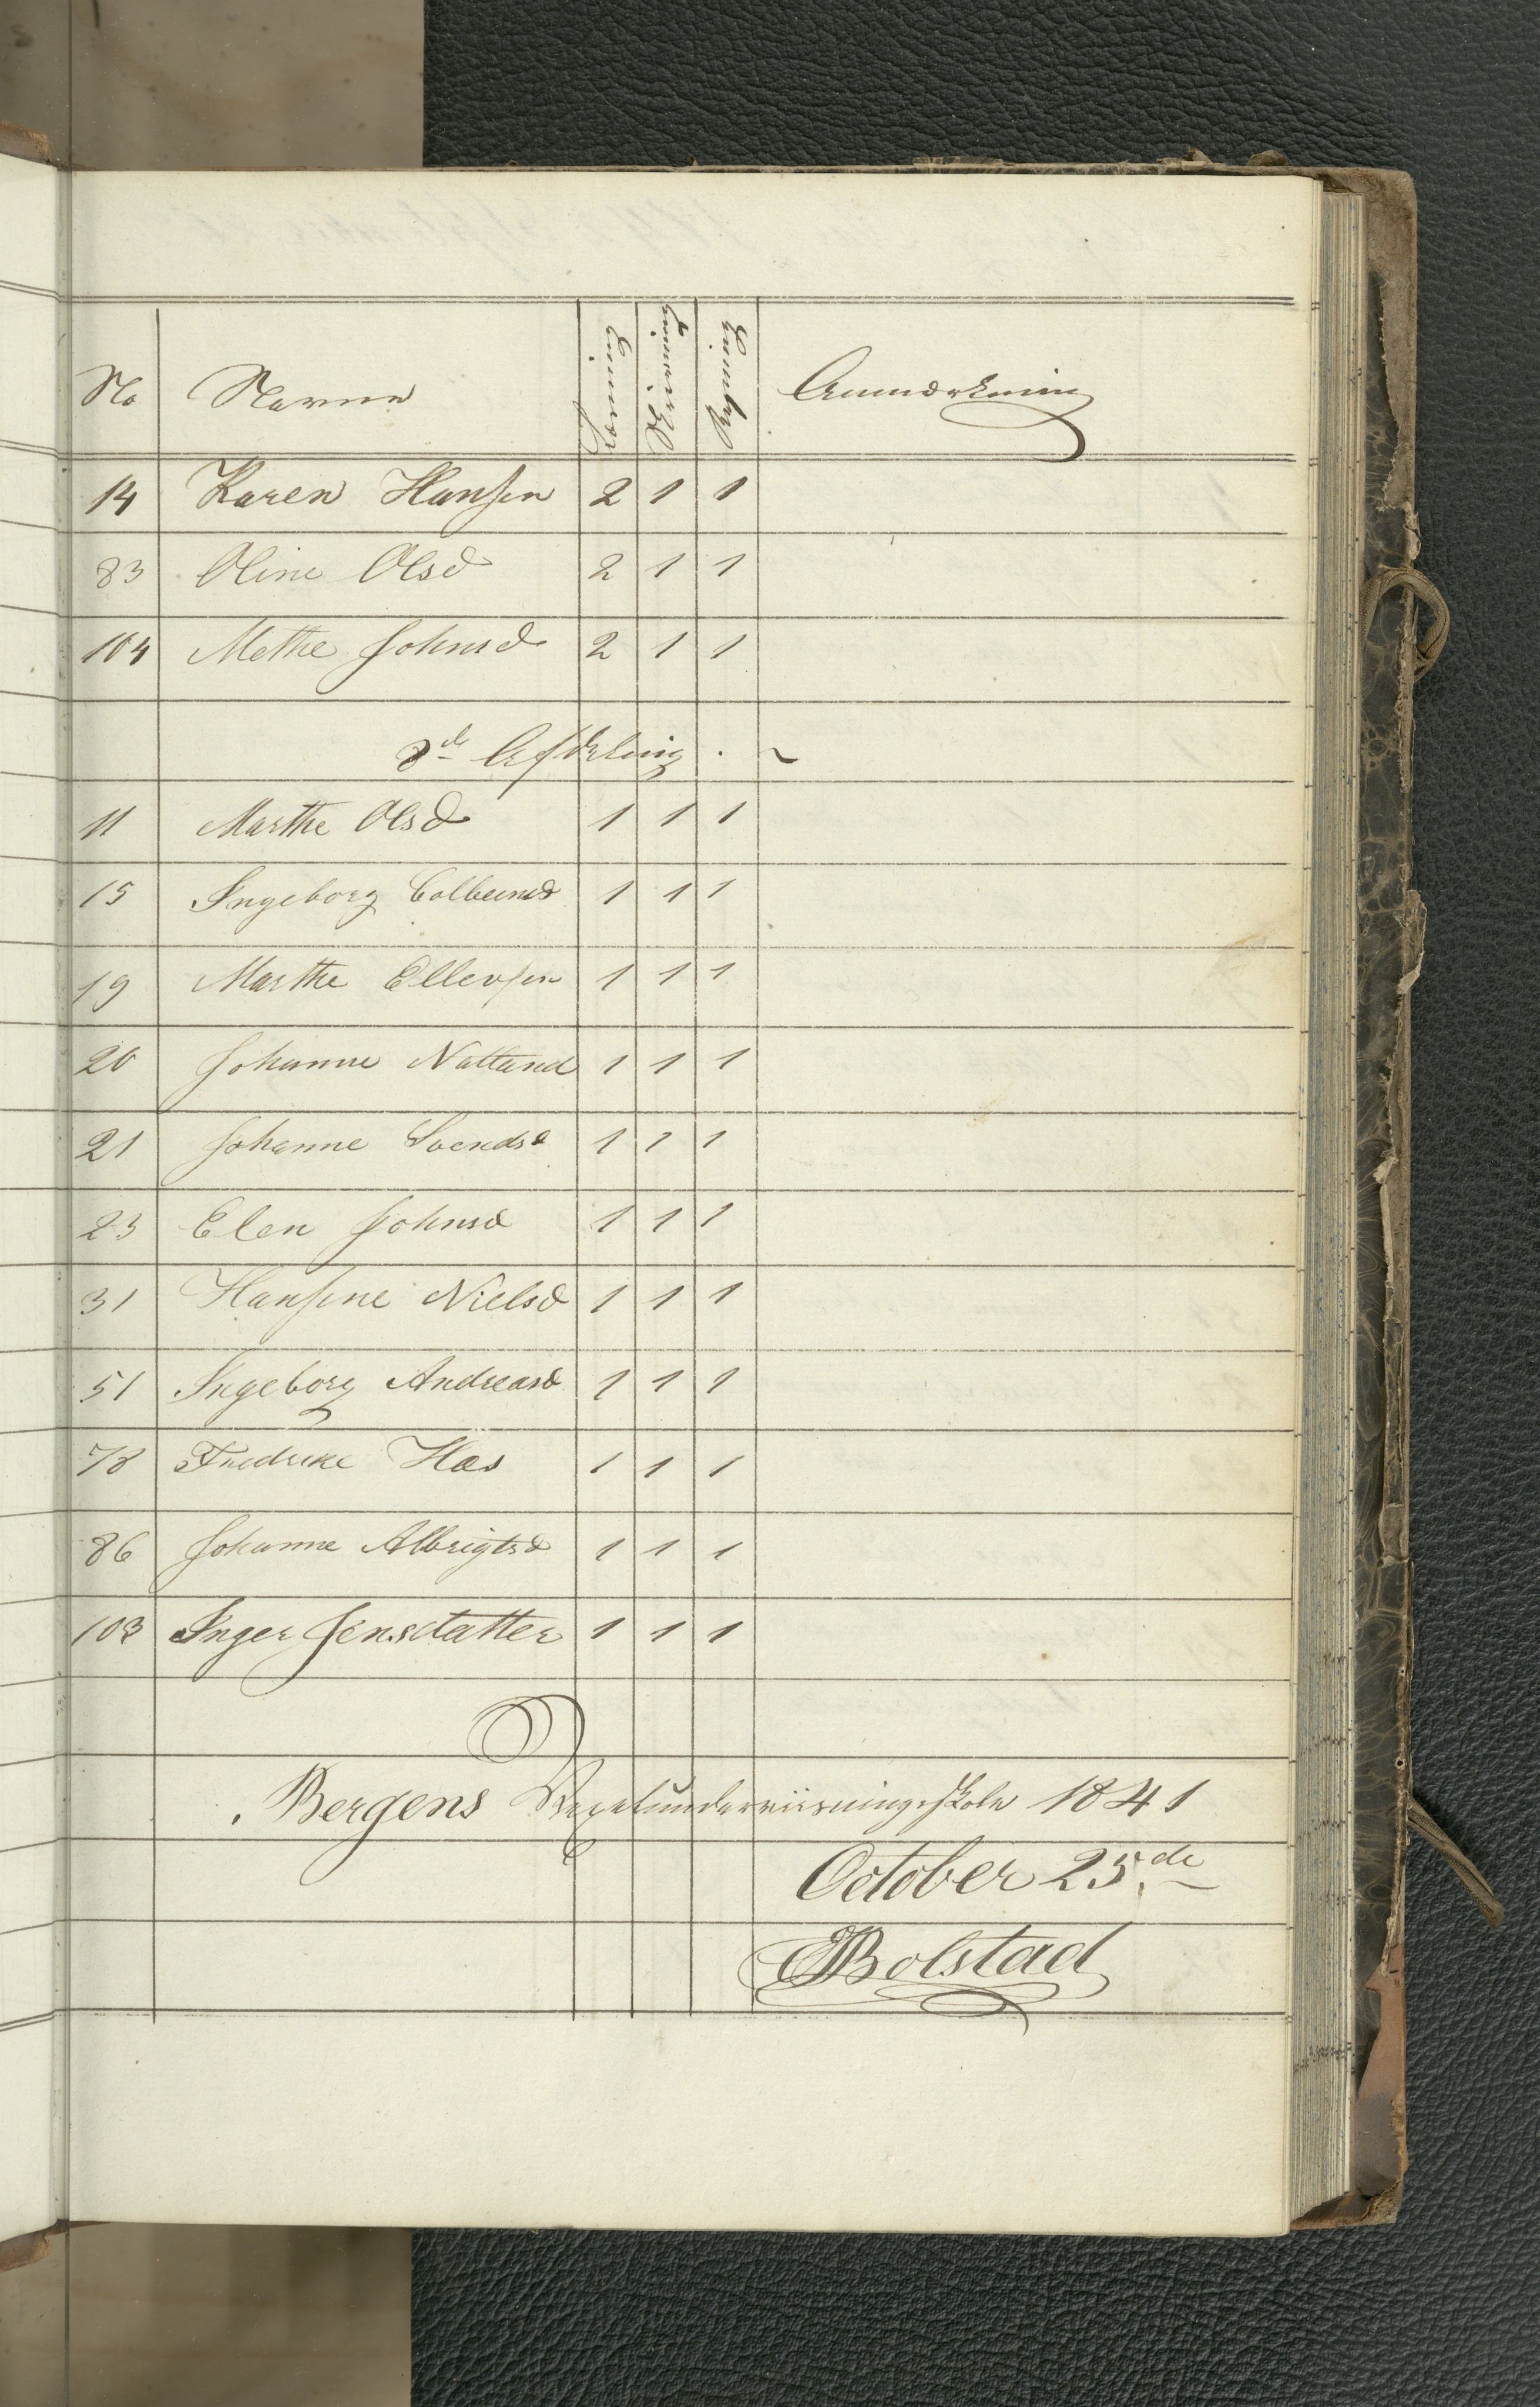 No Navne Læsning Skrivning Regning Anmærkning
14 Karen Hansen 2 1 1
83 Oline Olsd 2 1 1
104 Methe Johnsd 2 1 1
8de Afdeling
11 Marthe Olsd 1 1 1
15 Ingeborg Colbeensd 1 1 1
19 Marthe Ellevsen 1 1 1
20 Johanne Natland 1 1 1
21 Johanne Svendsd 1 1 1
23 Elen Johnsd 1 1 1
31 Hansine Nielsd 1 1 1
51 Ingeborg Andreasd 1 1 1
78 Fredrike Has 1 1 1
86 Johanne Albrigtsd 1 1 1
103 Inger Jensdatter 1 1 1
Bergens Vexelunderviisningsskole 1841
October 25de
EBolstad